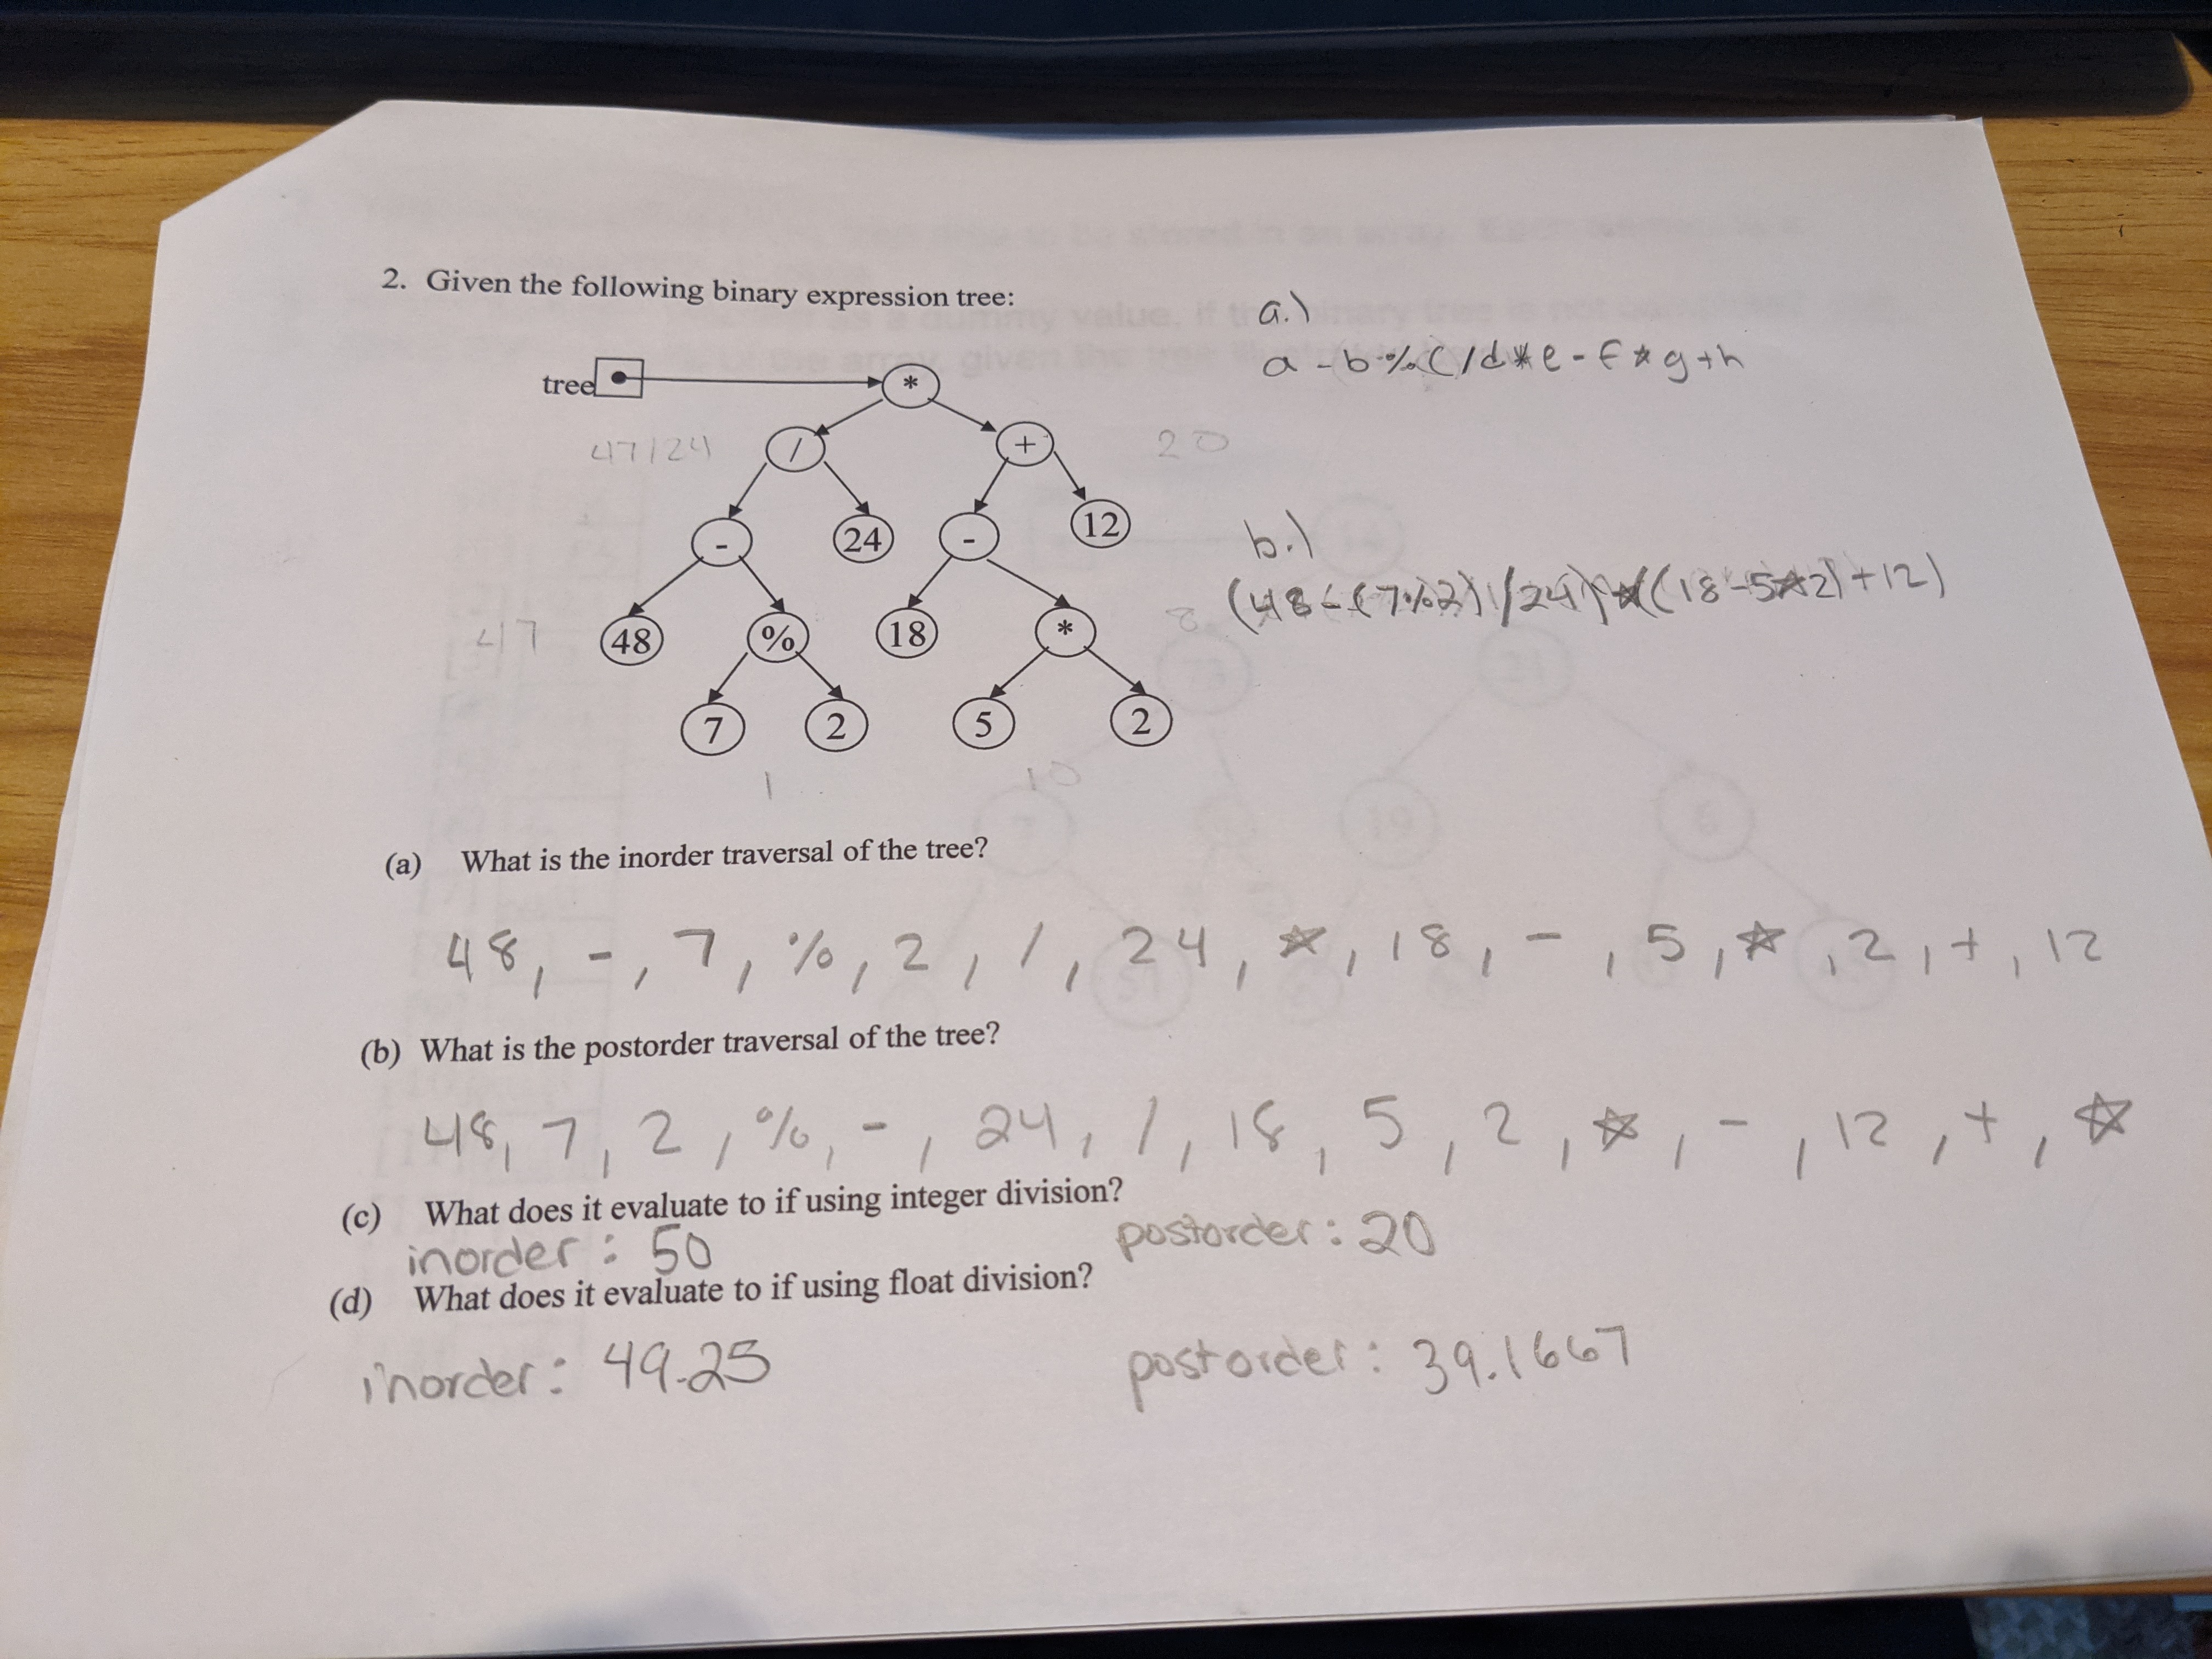 2. Given the following binary expression tree:
a.)
a - b % c / d * e - f * g + h
tree
*
47/24
/
+
20
-
24
-
12
b.)
(48 - (7%2) / 24) * ((18-5*2) + 12)
47
48
%
18
*
8
7
2
5
2
1
10
(a) What is the inorder traversal of the tree?
48, -, 7, %, 2, /, 24, *, 18, -, 5, *, 2, +, 12
(b) What is the postorder traversal of the tree?
48, 7, 2, %, -, 24, /, 18, 5, 2, *, -, 12, +, *
(c) What does it evaluate to if using integer division?
inorder: 50 postorder: 20
(d) What does it evaluate to if using float division?
inorder: 49.25 postorder: 39.1667